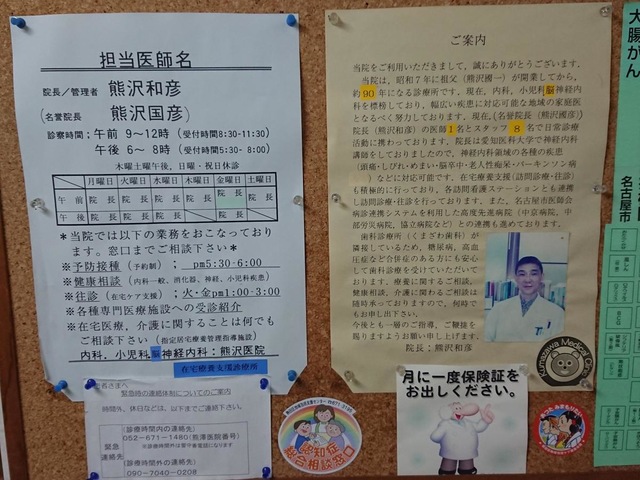 担当医師名
院長／管理者 熊沢和彦
(名誉院長 熊沢国彦)
診察時間：午前 9～12時 (受付時間8:30-11:30)
午後 6～ 8時 (受付時間5:30- 8:00)
木曜土曜午後、日曜・祝日休診
月曜日 火曜日 水曜日 木曜日 金曜日 土曜日
午 前 院 長 院 長 院 長 院 長 院 長 院 長
午 後 院 長 院 長 院 長 院 長
＊当院では以下の業務をおこなって
おります。窓口までご相談下さい＊
※予防接種 (予約制) ； pm5:30-6:00
※健康相談 (内科一般、消化器、神経、小児科疾患)
※往診 (在宅ケア支援) ；火・金pm1:00-3:00
※各種専門医療施設への受診紹介
※在宅医療、介護に関することは何でも
ご相談下さい (指定居宅療養管理指導施設)
内科．小児科．脳神経内科：熊沢医院
在宅療養支援診療所
ご案内
当院をご利用いただきまして、誠にありがとうございます。
当院は、昭和7年に祖父（熊沢國一）が開業してから、
約90年になる診療所です。現在、内科，小児科，脳神経内科
を標榜しており、幅広い疾患に対応可能な地域の家庭医
となるべく努力しております。現在、(名誉院長（熊沢國彦))
院長（熊沢和彦）の医師1名とスタッフ 8 名で日常診療
活動に携わっております。院長は愛知医科大学で神経内科
講師をしておりましたので、神経内科領域の各種の疾患
（頭痛・しびれ・めまい・脳卒中・老人性痴呆・パーキンソン病
）などに対応可能です。在宅療養支援（訪問診療・往診）
も積極的に行っており、各訪問看護ステーションとも連携
し訪問診療・往診を行っております。また、名古屋市医師会
病診連携システムを利用した高度先進病院（中京病院，中
部労災病院，協立病院など）との連携も進めております。
歯科診療所（くまざわ歯科）が
隣接しているため、糖尿病，高血
圧症など合併症のある方にも安心
して歯科診療を受けていただいて
おります。療養に関するご相談，
健康相談，介護に関わるご相談は
随時承っておりますので、何時でも
お申し出下さい。
今後とも一層のご指導、ご鞭撻を賜り
ますようお願い申し上げます。
院長：熊沢和彦
Kumazawa Medical Clinic
患者さまへ
緊急時の連絡体制についてのご案内
時間外、休日などは、以下までご連絡下さい。
緊急
連絡先
診療時間内の連絡先
052-671-1480(熊澤医院番号)
診療時間外の連絡先
090-7040-0208
認知症
総合相談窓口
月に一度保険証を
お出しください。
大腸がん
名古屋市